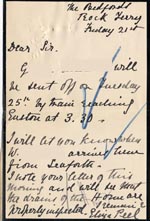 The Bedford
Rock Ferry
Friday 21st
Dear Sir.
G will
be sent off on Tuesday
25th by train reaching
Euston at 3.30.
I will let you know when
W. arrives here
from Seaforth.
I note your letter of this
morning and will be sent
the drains of the Home are
properly inspected.